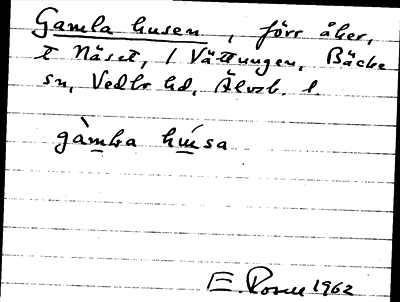 Gamla husen, förr åker,
t Näset, 1 Vättungen, Bäcke
sn, Vedbo hd, Älvsb. l.
gàmba húsa
E. Rosen 1962